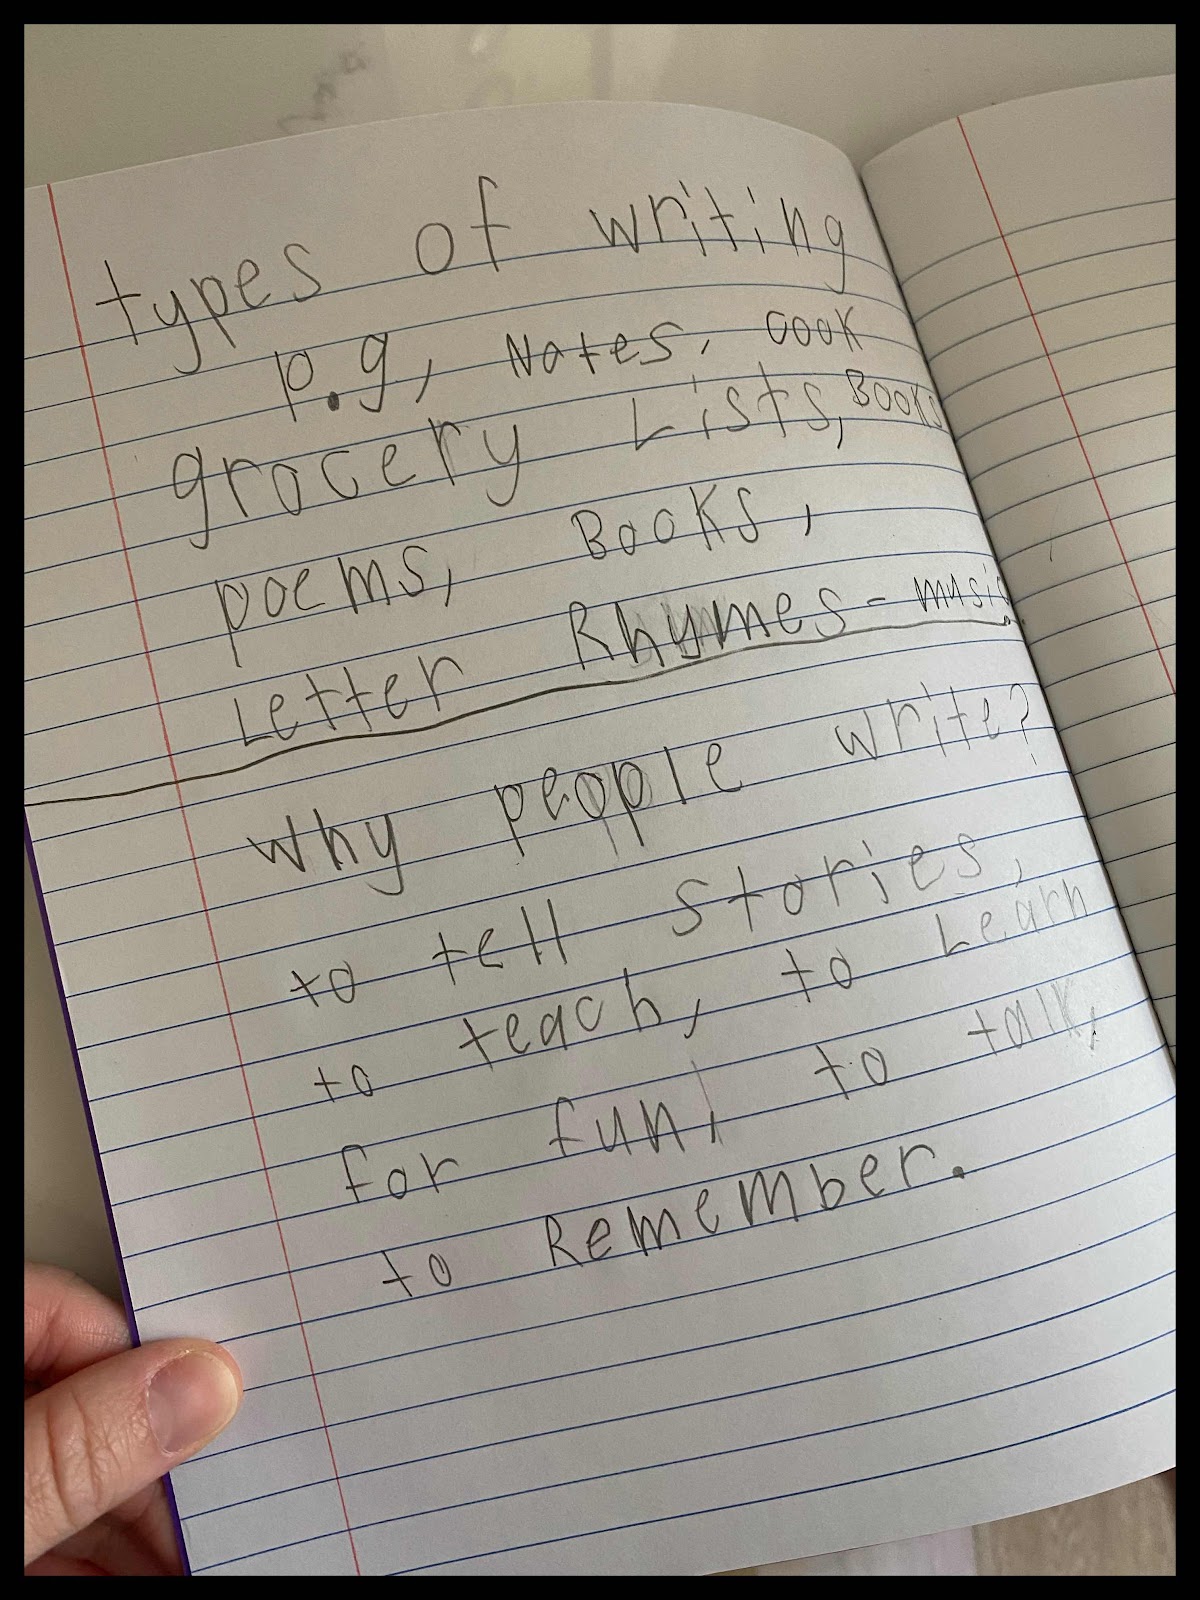 types of writing
p.g, Notes, cook
grocery Lists, Books
poems, Books,
Letter Rhymes - music
Why people write?
to tell stories,
to teach, to Learn
for fun, to talk,
to Remember.